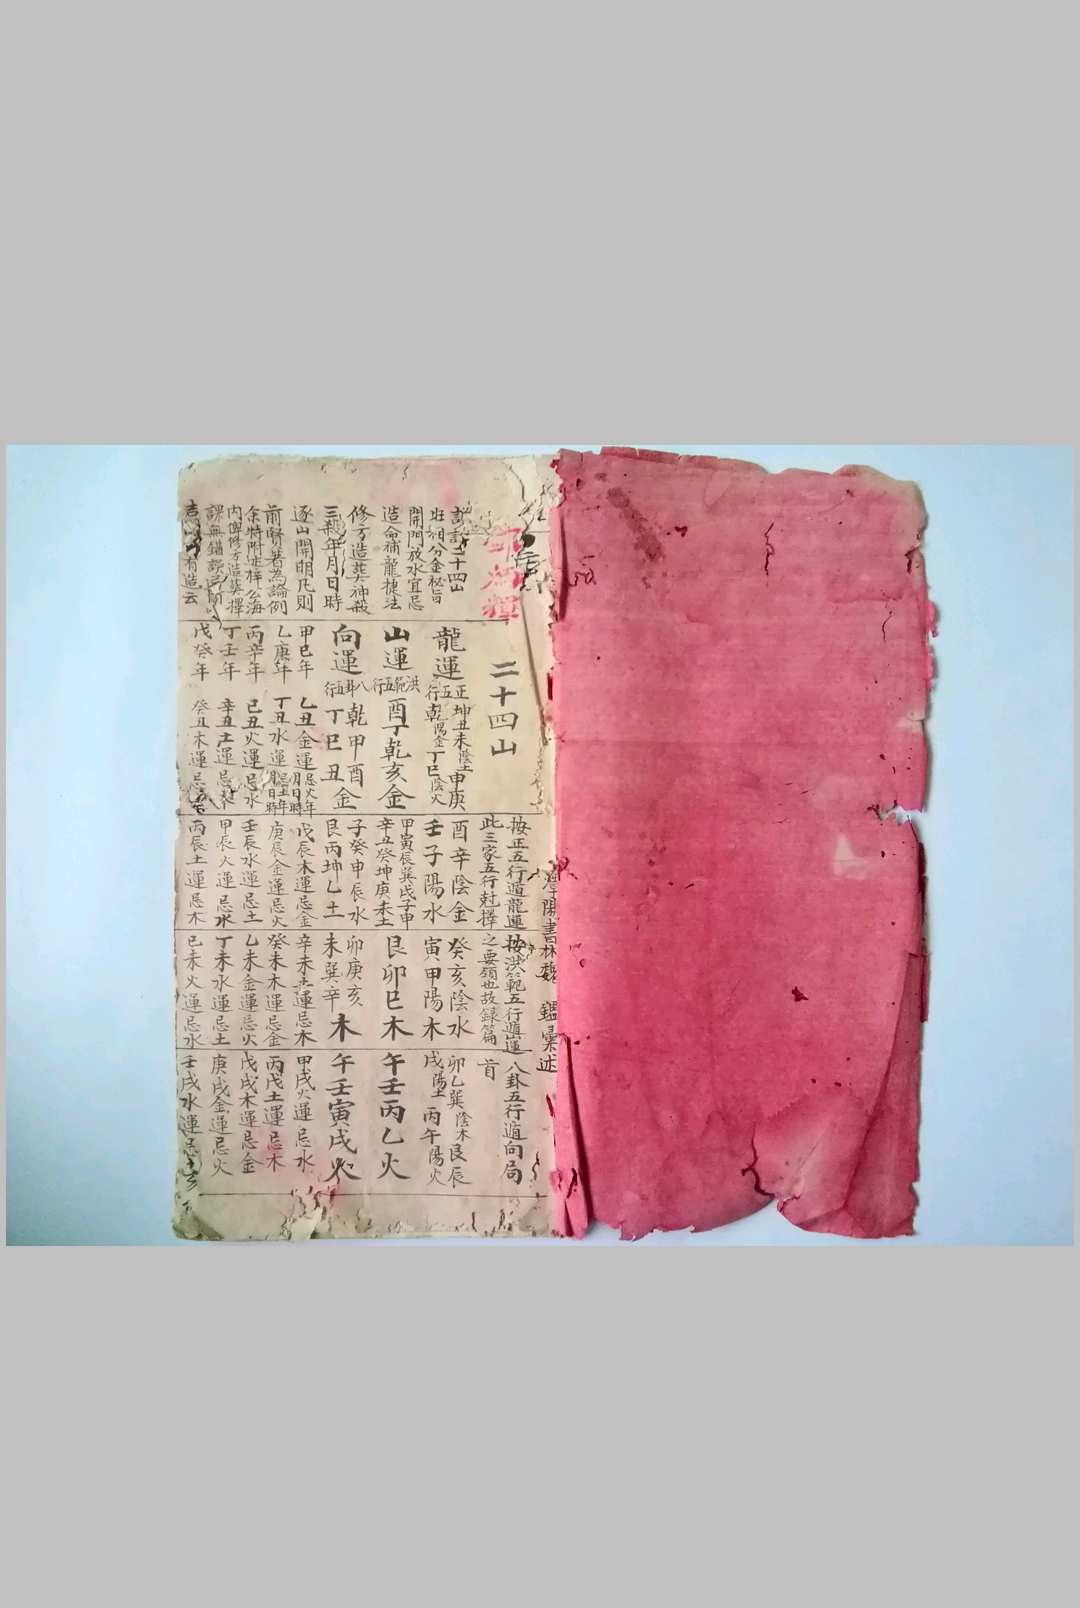 潭陽書林魏 鑑彙述
二十四山
按正五行遁龍運
此三家五行尅擇
按洪範五行遁山運
之要領也故録篇
八卦五行遁向局
首
二十四山
壯相分金秘旨
開門放水宜忌
造命補龍捷法
修方造葬神殺
三殺年月日時
逐山開明凡則
前賢著為論例
余特附進梓公海
内俾修方造葬擇
課無錯誤
有造云
龍運
正五行
坤丑未陰土
乾陽金
申庚
丁巳陰火
酉辛陰金
壬子陽水
癸亥陰水
寅甲陽木
卯乙巽陰木
艮辰戌陽土
丙午陽火
山運
洪範五行
酉丁乾亥金
甲寅辰巽戌子申
辛丑癸坤庚未土
艮卯巳木
午壬丙乙火
向運
八卦五行
乾甲酉
丁巳丑金
子癸申辰水
艮丙坤乙土
卯庚亥
未巽辛木
午壬寅戌火
甲巳年
乙丑金運忌火年月日時
戊辰木運忌金
辛未土運忌木
甲戌火運忌水
乙庚年
丁丑水運忌土年月日時
庚辰金運忌火
癸未木運忌金
丙戌土運忌木
丙辛年
己丑火運忌水
壬辰水運忌土
乙未金運忌火
戊戌木運忌金
丁壬年
辛丑土運忌木
甲辰火運忌水
丁未水運忌土
庚戌金運忌火
戊癸年
癸丑木運忌
丙辰土運忌木
己未火運忌水
壬戌水運忌土